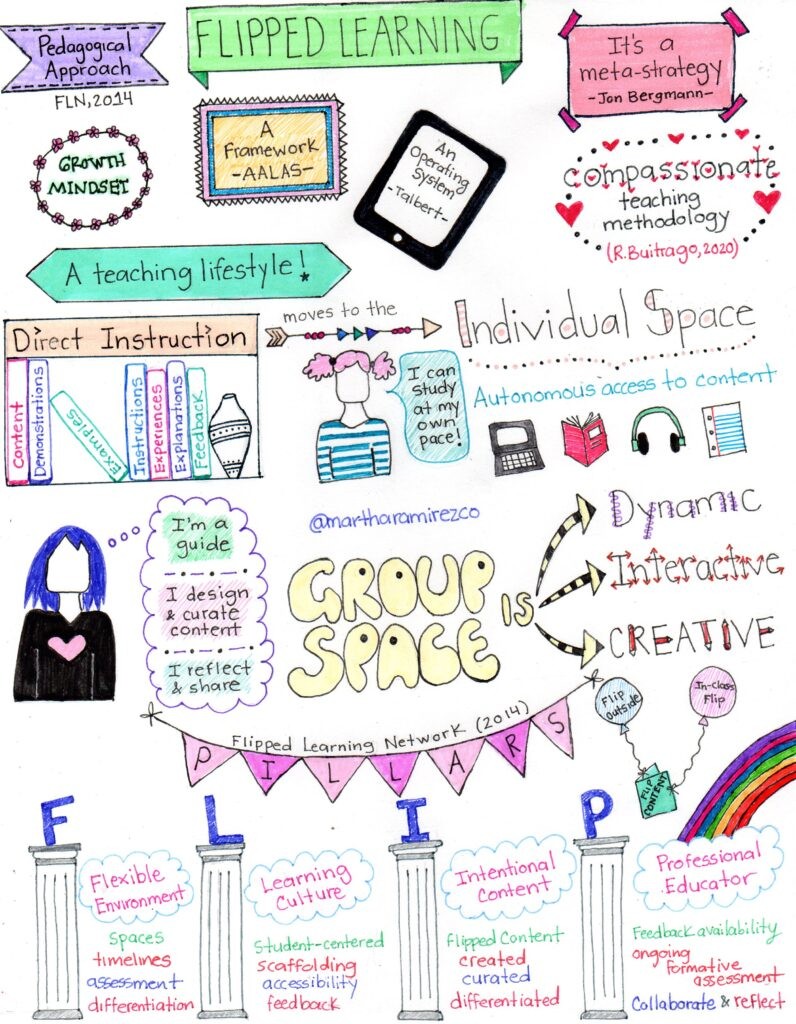 Pedagogical
Approach
FLN, 2014
FLIPPED LEARNING
It's a
meta-strategy
-Jon Bergmann-
GROWTH
MINDSET
A
Framework
-AALAS-
An
Operating
System
-Talbert-
compassionate
teaching
methodology
(R.Buitrago, 2020)
A teaching lifestyle!
Direct Instruction
moves to the
Individual Space
Content
Demonstrations
Examples
Instructions
Experiences
Explanations
Feedback
I can
study
at my
own
pace!
Autonomous access to content
I'm a
guide
I design
& curate
content
I reflect
& share
@martharamirezco
GROUP
SPACE
IS
Dynamic
Interactive
CREATIVE
Flip
Outside
In-Class
Flip
FLIP
CONTENT
Flipped Learning Network (2014)
PILLARS
F
L
I
P
Flexible
Environment
spaces
timelines
assessment
differentiation
Learning
Culture
Student-centered
scaffolding
accessibility
feedback
Intentional
Content
Flipped Content
created
curated
differentiated
Professional
Educator
Feedback availability
ongoing
formative
assessment
Collaborate & reflect